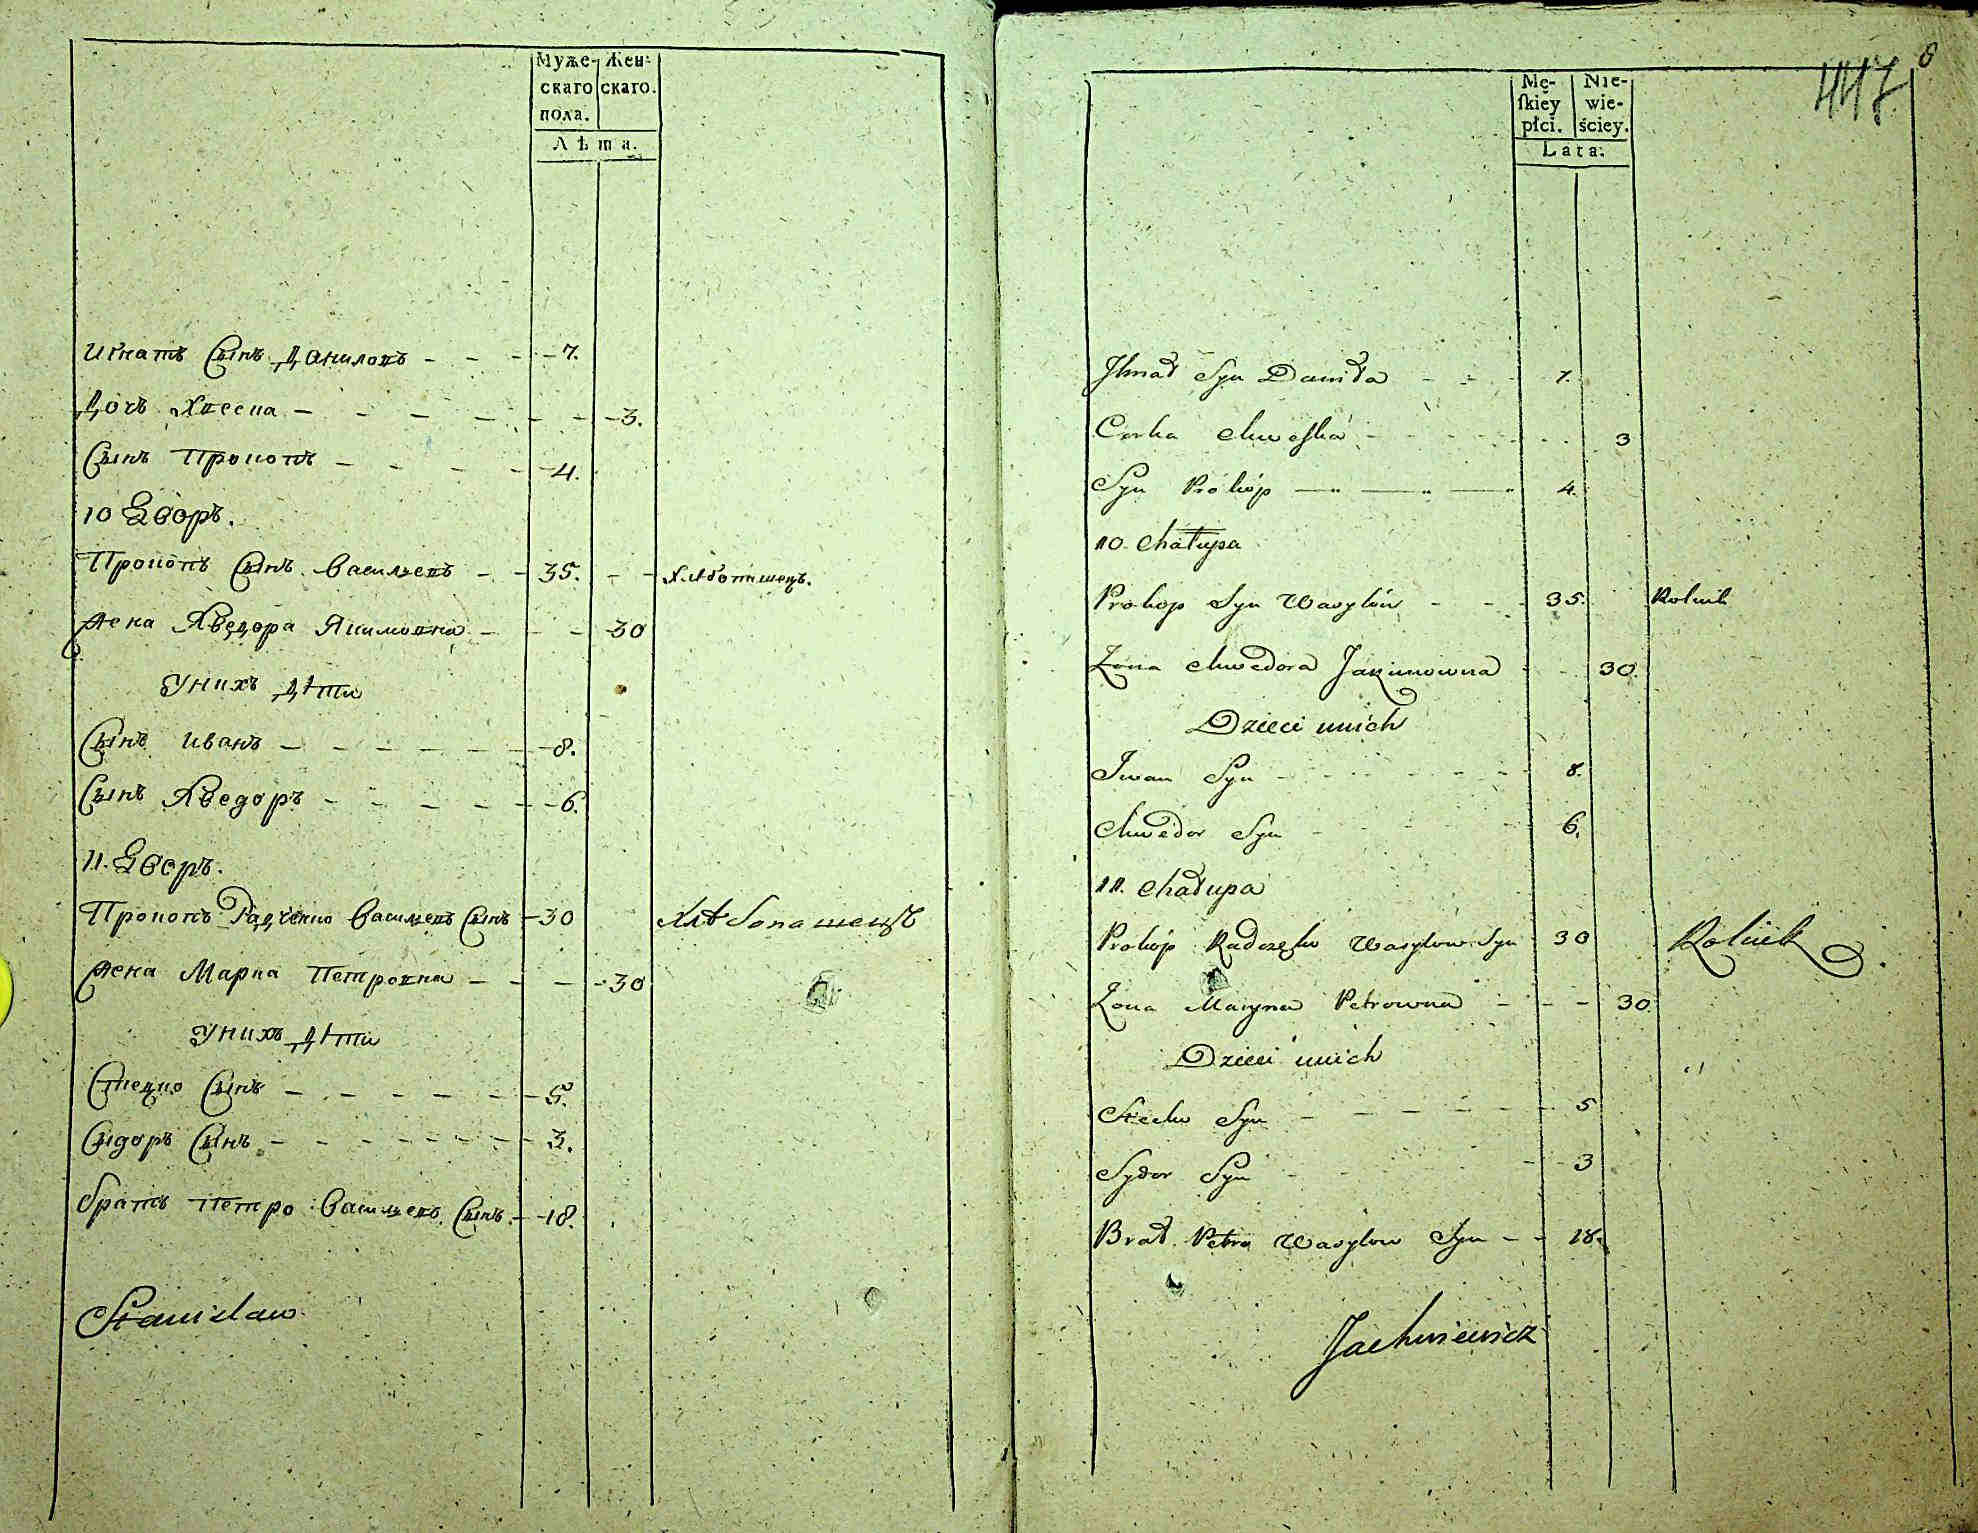 Муже-
скаго
пола.
Жен-
скаго.
Лѣта.
Игнатъ Сынъ Даниловъ - - - 7.
Дочь Хвеска - - - 3.
Сынъ Прокопъ - - - 4.
10 Дворъ.
Прокопъ Сынъ Васильевъ - - 35. - - Хлѣбопашецъ.
Жена Хведора Якимовна - - - 30
У нихъ дѣти
Сынъ Иванъ - - - 8.
Сынъ Хведоръ - - - 6.
11. Дворъ.
Прокопъ Радченко Васильевъ Сынъ - 30 Хлѣбопашецъ
Жена Марна Петровна - - - 30
У нихъ дѣти
Стецко Сынъ - - - 5.
Сидоръ Сынъ - - - 3.
братъ Петро Васильевъ Сынъ. - 18.
Stanisław
8
447
Mę-
ſkiey
płci.
Nie-
wie-
ściey.
Lata.
Ihnat Syn Daniła - - - 7.
Corka Chweſka - - - 3
Syn Prokóp - - - 4.
10. Chałupa
Prokop Syn Wasylów - - - 35. Rolnik
Zona Chwedora Jakimowna - - 30.
Dzieci unich
Iwan Syn - - - 8.
Chwedor Syn - - - 6.
11. Chałupa
Prokóp Radczęko Wasylow Syn 30 Rolnik
Zona Maryna Petrowna - - - 30.
Dzieci unich
Stecko Syn - - - 5
Sydor Syn - - - 3
Brat Petro Wasylow Syn - - 18.
Jachniewicz